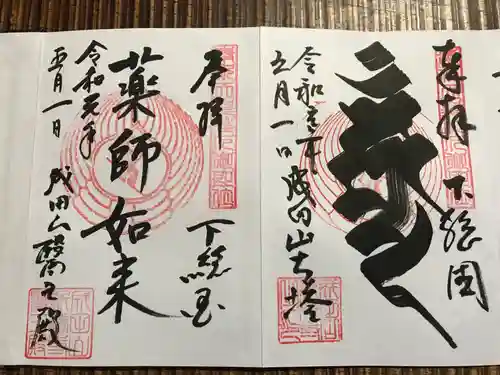 奉拝 下総国
令和元年
五月一日 成田山大塔
奉拝
下総国
薬師如来
令和元年
五月一日 成田山醫王殿